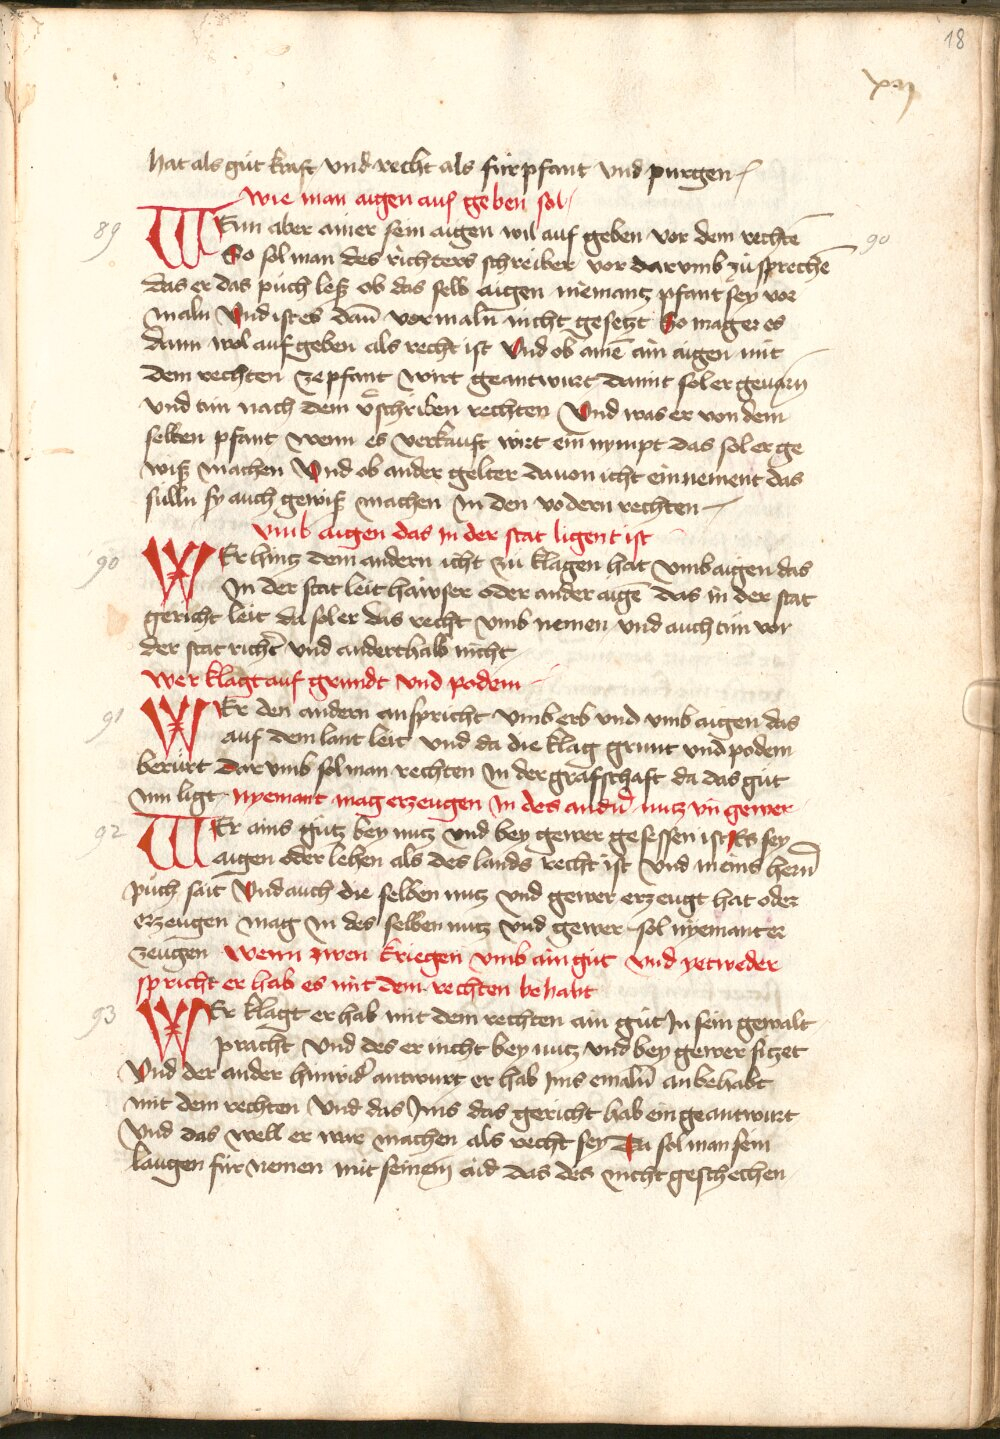 18
xvij
hat als gut kraft vnd recht als für pfant vnd purgen
wie man aigen auf geben sol
89
WEnn aber ainer sein aigen wil auf geben vor dem rechtē
90
So sol man des richters schreiber vor dar vmb zu sprechē
das er das puch leß ob das selb aigen niemantz pfant sey vor
maln Vnd ist es dañ vormaln nicht gesetzt So mag er es
dann wol auf geben als recht ist Vnd ob ainē ain aigen mit
dem rechten ze pfant wirt geantwurt damit sol er geuarn
vnd tun nach dem v̊schriben rechten Vnd was er von dem
selben pfant wenn es verkauft wirt ein nympt das sol er ge
wiß machen Vnd ob ander gelter dauon icht ein nement das
sulln sy auch gewiß machen In den vodern rechten
vmb aigen das in der stat ligent ist
90
WEr hintz dem andern icht zu klagen hat vmb aigen das
In der stat leit häwser oder ander aigē das in der stat
gericht leit da sol er das recht vmb nemen vnd auch tun vor
der stat richt̄ vnd anderthalb nicht
wer klagt auf grundt vnd podem
91
WEr den andern anspricht vmb erb vnd vmb aigen das
auf dem lant leit vnd da die klag grunt vnd podem
berürt dar vmb sol man rechten In der grafschaft da das gut
Inn ligt nyemant mag erzeugen in des andn̄ nutz vn̄ gewer
92
WEr ains gutz bey nutz vnd bey gewer gesessen ist Es sey
aigen oder lehen als des lands recht ist vnd meins hern̄
puch sait Vnd auch die selben nutz vnd gewer erzeugt hat oder
erzeugen mag In des selben nutz vnd gewer sol nyemant er
zeugen wenn zwen kriegen vmb ain gut vnd yetweder
spricht er hab es mit dem rechten behabt
93
WEr klagt er hab mit dem rechten ain gut In sein gewalt
pracht vnd des er nicht bey nutz vnd bey gewer sitzet
Vnd der ander hinwid̄ antwurt er hab Ims emaln̄ an behabt
mit dem rechten vnd das Ims das gericht hab ein geantwurt
vnd das well er war machen als recht sey Da sol man sein
laugen für nemen mit seinem aid das des nicht geschechen